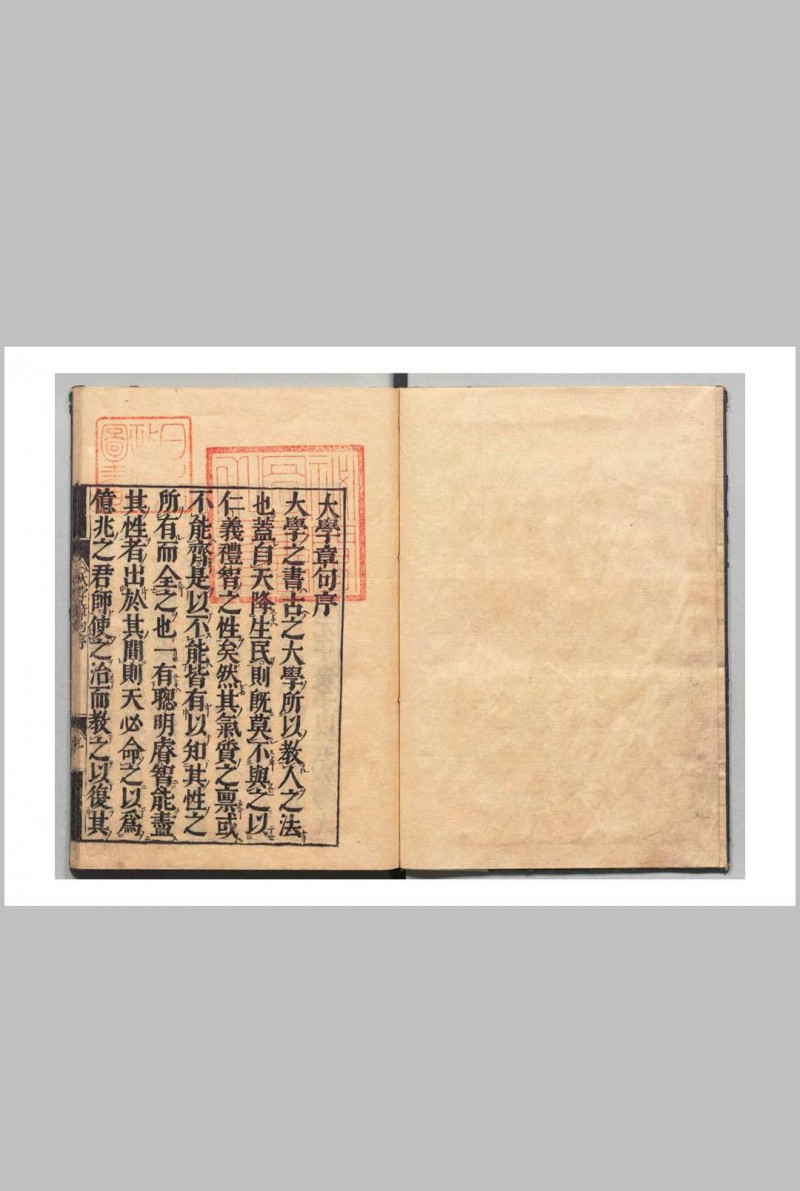 大學章句序
大學之書古之大學所以教人之法
也蓋自天降生民則既莫不與之以
仁義禮智之性矣然其氣質之稟或
不能齊是以不能皆有以知其性之
所有而全之也一有聰明睿智能盡
其性者出於其閒則天必命之以爲
億兆之君師使之治而教之以復其